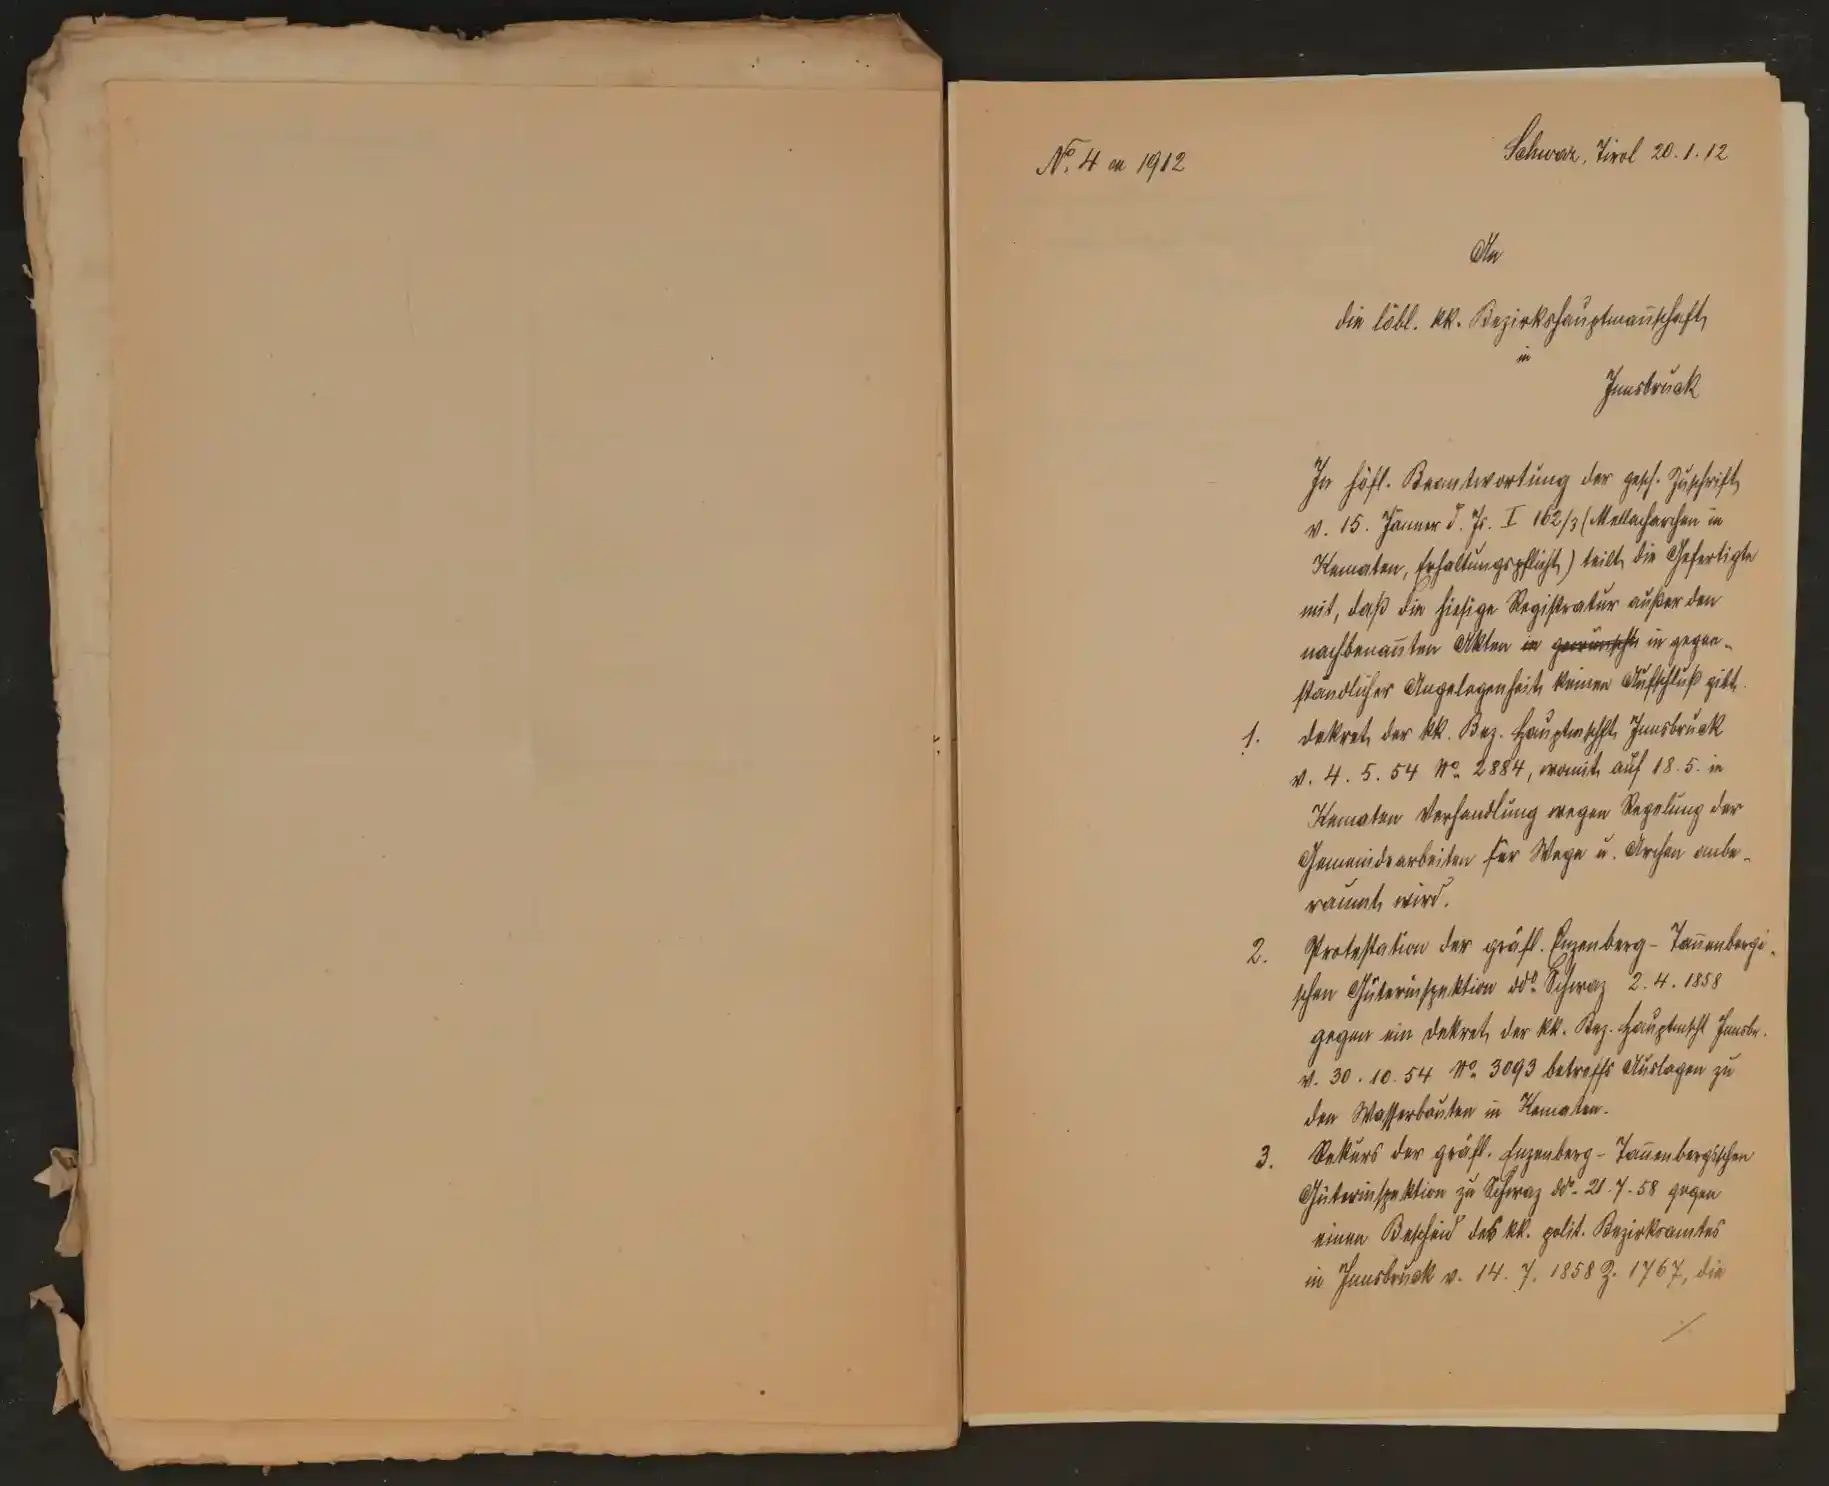 No. 4 ex 1912
Schwaz, Tirol 20.1.12
An
die löbl. kk. Bezirkshauptmannschaft
in
Innsbruck
In höfl. Beantwortung der gesch. Zuschrift
v. 15. Jänner d. Js. I 162/3 (Mellacharchen in
Kematen, Erhaltungspflicht) teilt die Gefertigte
mit, daß die hiesige Registratur außer den
nachbenannten Akten in gewünscht in gegen-
ständlicher Angelegenheit keinen Aufschluß gibt.
1. Dekret der kk. Bez. Hauptmschft Innsbruck
v. 4.5.54 No. 2884, womit auf 18.5. in
Kematen Verhandlung wegen Regelung der
Gemeindearbeiten für Wege u. Archen anbe-
raumt wird.
2. Protestation der gräfl. Enzenberg-Tannenbergi-
schen Güterinspektion ddo. Schwaz 2.4.1858
gegen ein Dekret der kk. Bez. Hauptmscht Innsbr.
v. 30.10.54 No. 3093 betreffs Auslagen zu
den Wasserbauten in Kematen.
3. Rekurs der gräfl. Enzenberg-Tannenbergischen
Güterinspektion zu Schwaz ddo. 21.7.58 gegen
einen Bescheid des kk. polit. Bezirksamtes
in Innsbruck v. 14.7.1858 Z. 1767, die